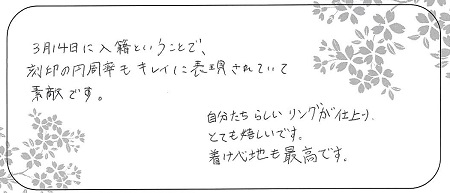 3月14日に入籍ということで、
刻印の円周率もキレイに表現されていて
素敵です。
自分たちらしいリングが仕上り、
とても嬉しいです。
着け心地も最高です。